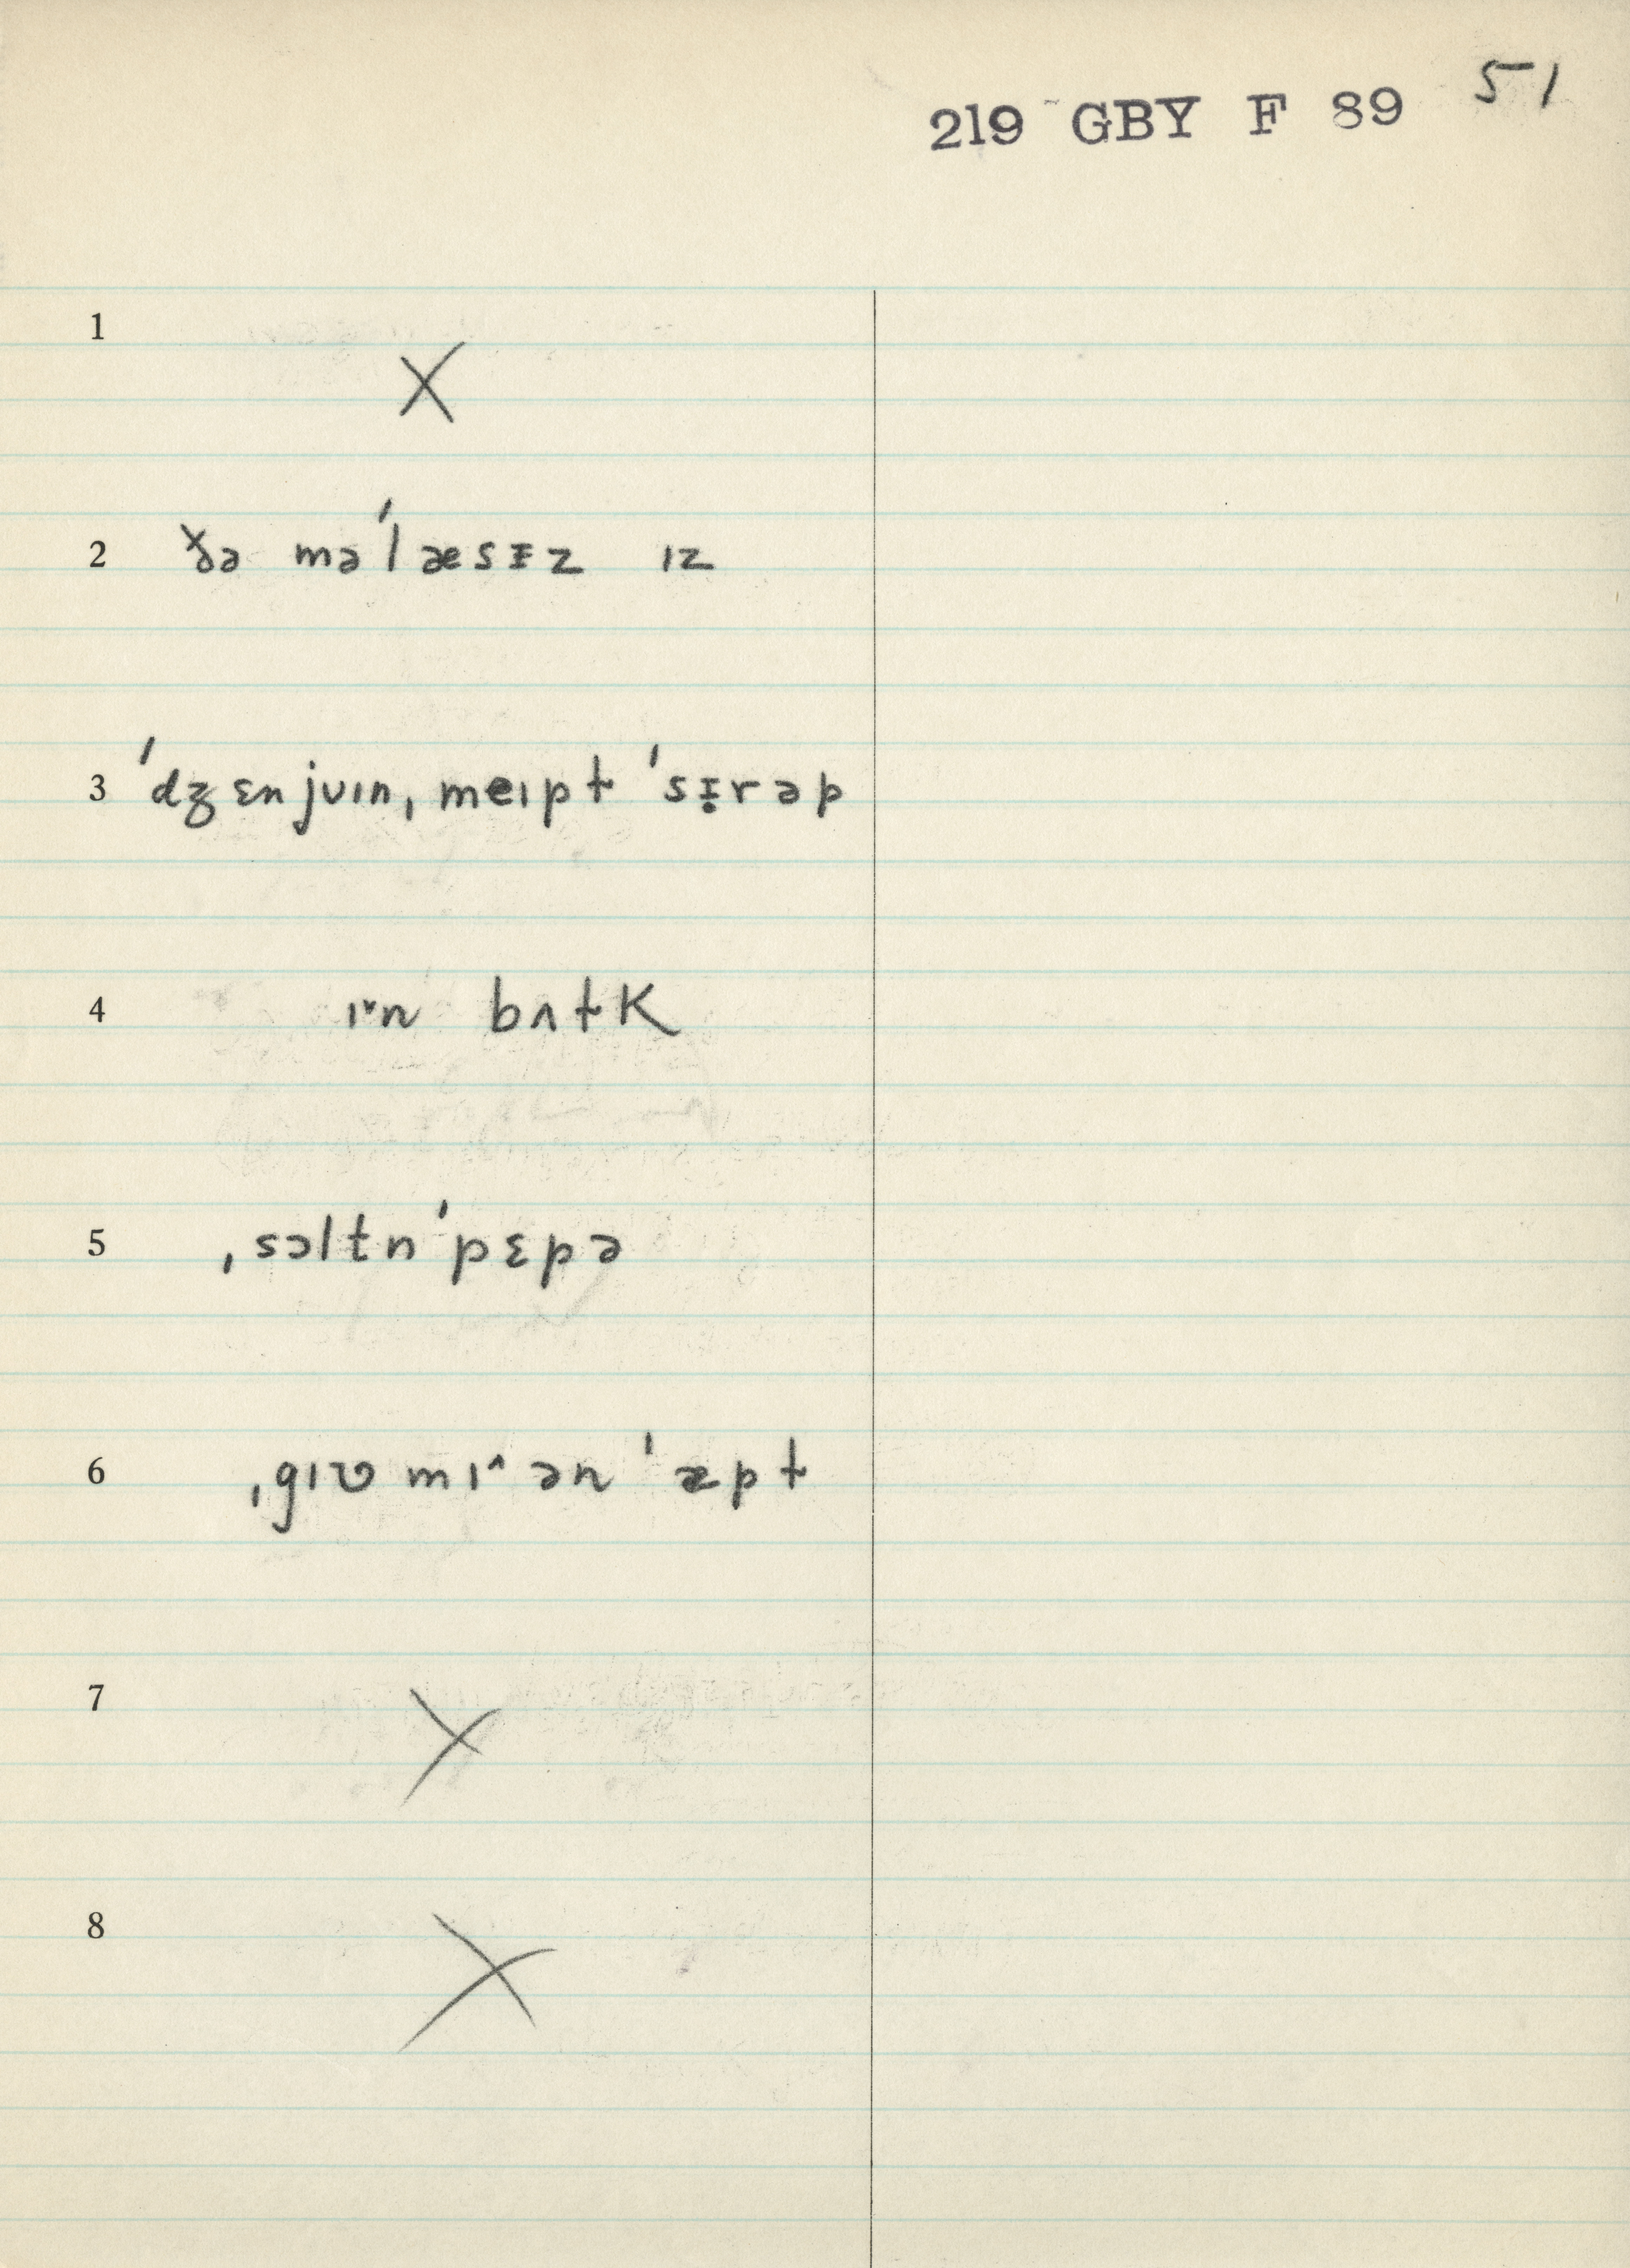 219 GBY F 89 51
1
X
2 ðə məˈlæsᵻz ɪz
3 ˈdʒɛnjʊɪn, meɪpt ˈsᵻ̣rəp
4 ɪ˅n bʌtK
5 ˌsɔltnˈpɛpə
6 ˌgɪʋ mɪ^ ənˈæpt
7
X
8
X